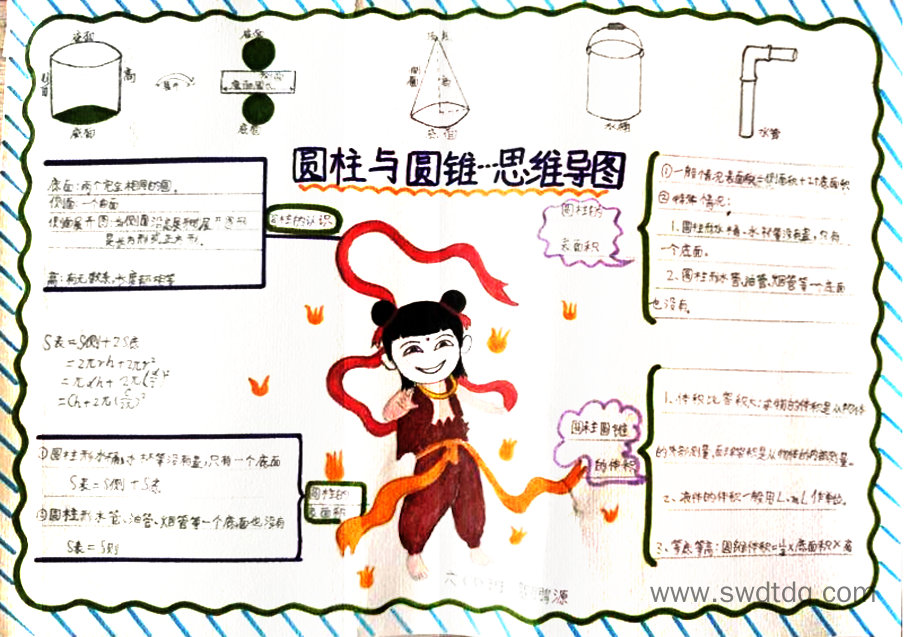 底面
高
底面
底面
底面周长
底面
底面
水桶
水管
圆柱与圆锥…思维导图
底面：两个完全相同的圆。
侧面：一个曲面
高：有无数条，长度都相等
圆柱的认识
S表=S侧+2S底
=2πrh+2πr²
①圆柱形水桶，水杯等没有盖，只有一个底面
S表=S侧+S底
②圆柱形水管、油管、烟管等一个底面也没有
S表=S侧
圆柱的
表面积
圆柱的
表面积
①一般情况表面积=侧面积+2个底面积
②特殊情况：
1、圆柱形水桶、水杯等没有盖，只有
一个底面。
2、圆柱形水管、油管、烟管等一个底面
也没有。
圆柱圆锥
的体积
1、体积比容积大：求物的体积是从物体
的外部测量，而求容积是从物体的内部测量。
2、液体的体积一般用L、mL作单位。
3、等底等高：圆锥体积=⅓×底面积×高
www.swdtdq.com